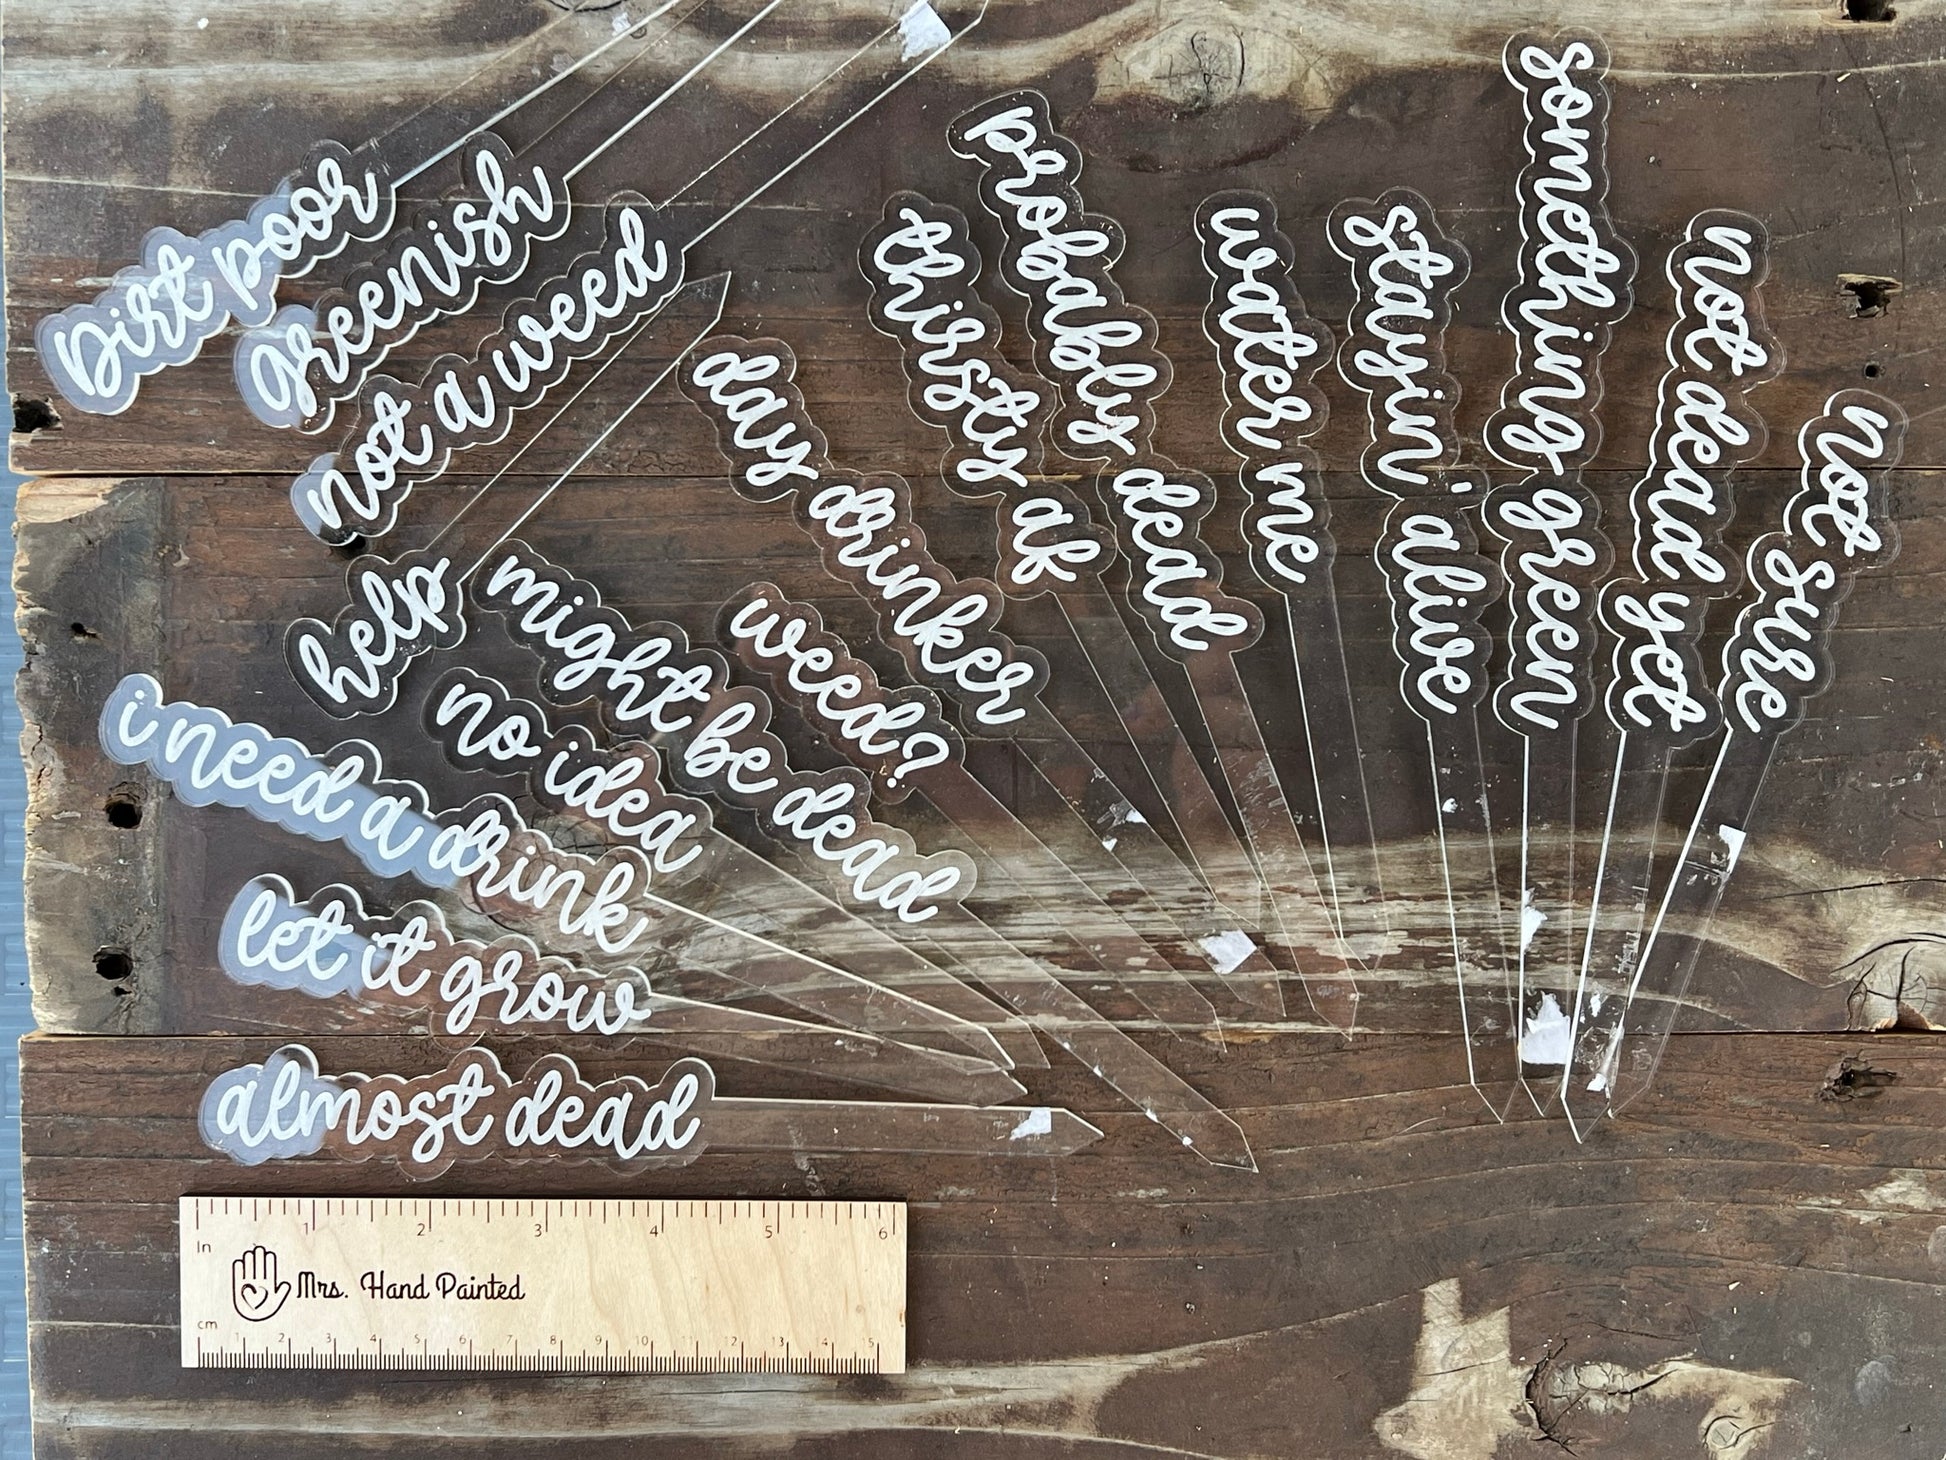 Dirt poor
Greenish
not a weed
help
i need a drink
let it grow
almost dead
no idea
might be dead
weed?
day drinker
thirsty af
probably dead
water me
stayin' alive
something green
not dead yet
not sure
1 2 3 4 5 6
In
Mrs. Hand Painted
cm
1 2 3 4 5 6 7 8 9 10 11 12 13 14 15